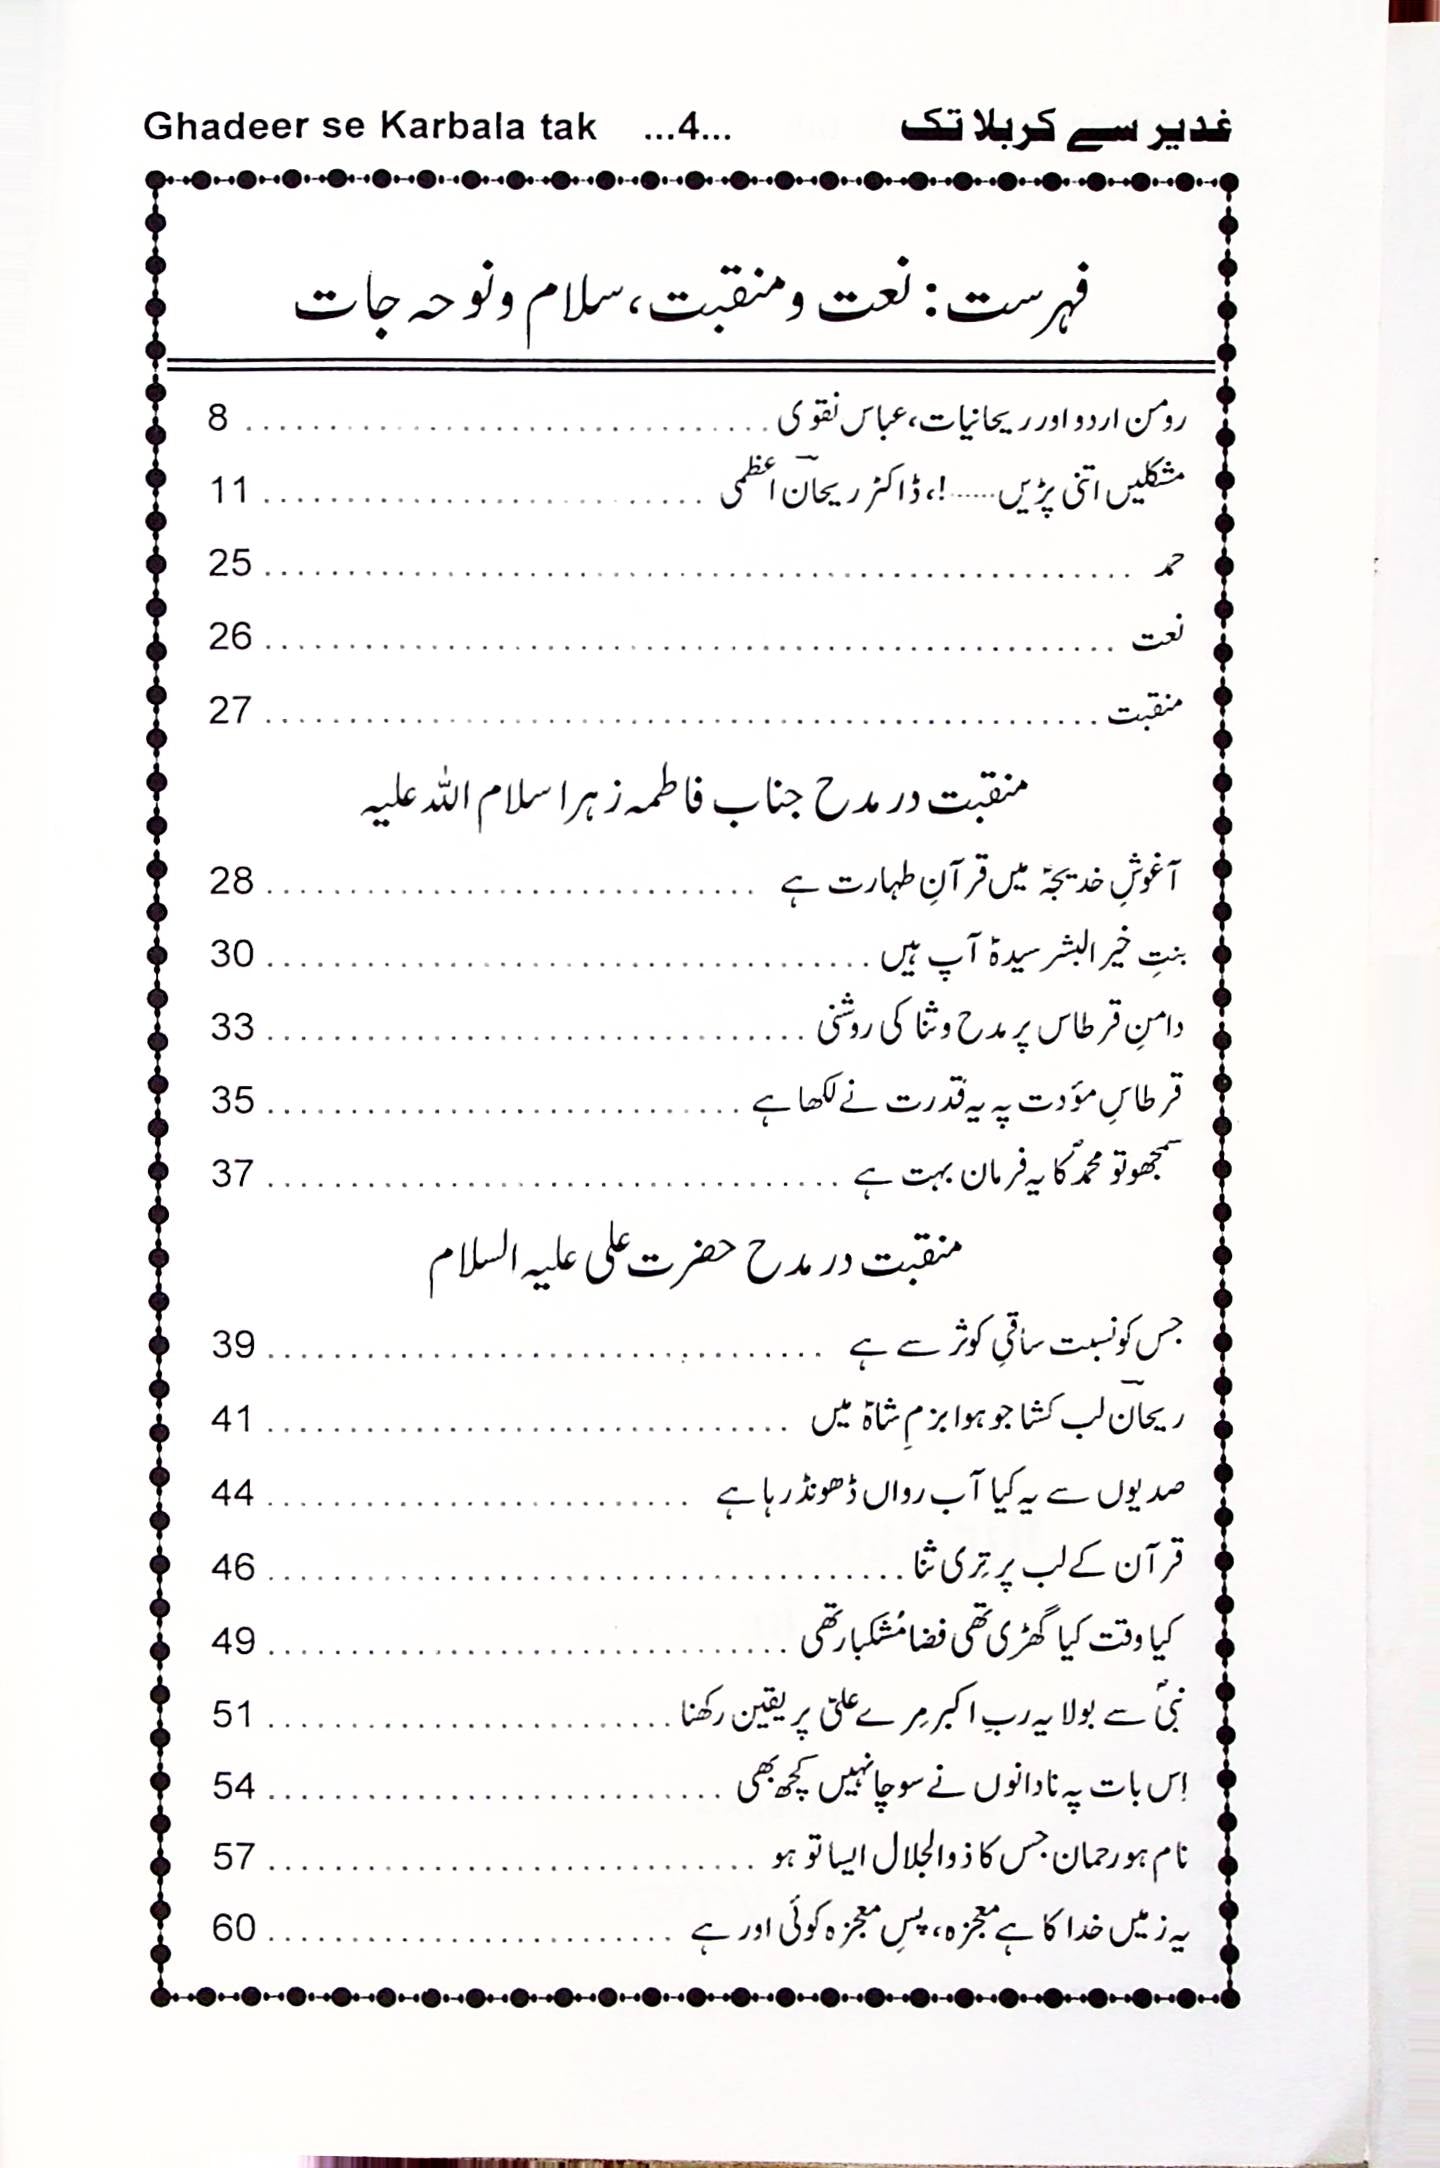 Ghadeer se Karbala tak ...4... غدیر سے کربلا تک
فہرست: نعت و منقبت، سلام و نوحہ جات
رومن اردو اور ریحانیات، عباس نقوی ........ 8
مشکلیں اتنی پڑیں......!، ڈاکٹر ریحانؔ اعظمی ........ 11
حمد ........ 25
نعت ........ 26
منقبت ........ 27
منقبت در مدح جناب فاطمہ زہرا سلام اللہ علیہ
آغوشِ خدیجہؑ میں قرآنِ طہارت ہے ........ 28
بنتِ خیر البشر سیدہؑ آپ ہیں ........ 30
دامنِ قرطاس پر مدح و ثنا کی روشنی ........ 33
قرطاسِ مؤدت پہ یہ قدرت نے لکھا ہے ........ 35
سمجھو تو محمدؐ کا یہ فرمان بہت ہے ........ 37
منقبت در مدح حضرت علی علیہ السلام
جس کو نسبت ساقیِ کوثر سے ہے ........ 39
ریحانؔ لب کشا جو ہوا بزمِ شاہؑ میں ........ 41
صدیوں سے یہ کیا آب رواں ڈھونڈ رہا ہے ........ 44
قرآن کے لب پر تِری ثنا ........ 46
کیا وقت کیا گھڑی تھی فضا مُشکبار تھی ........ 49
نبیؐ سے بولا یہ ربِ اکبر مِرے علیؑ پر یقین رکھنا ........ 51
اِس بات پہ نادانوں نے سوچا نہیں کچھ بھی ........ 54
نام ہو رحمان جس کا ذوالجلال ایسا تو ہو ........ 57
یہ زمیں خدا کا ہے معجزہ، پسِ معجزہ کوئی اور ہے ........ 60